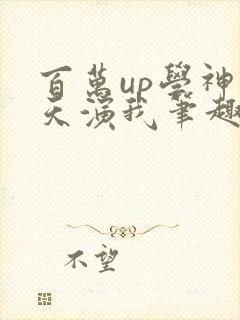 百萬up學神
天演我筆趣
不望